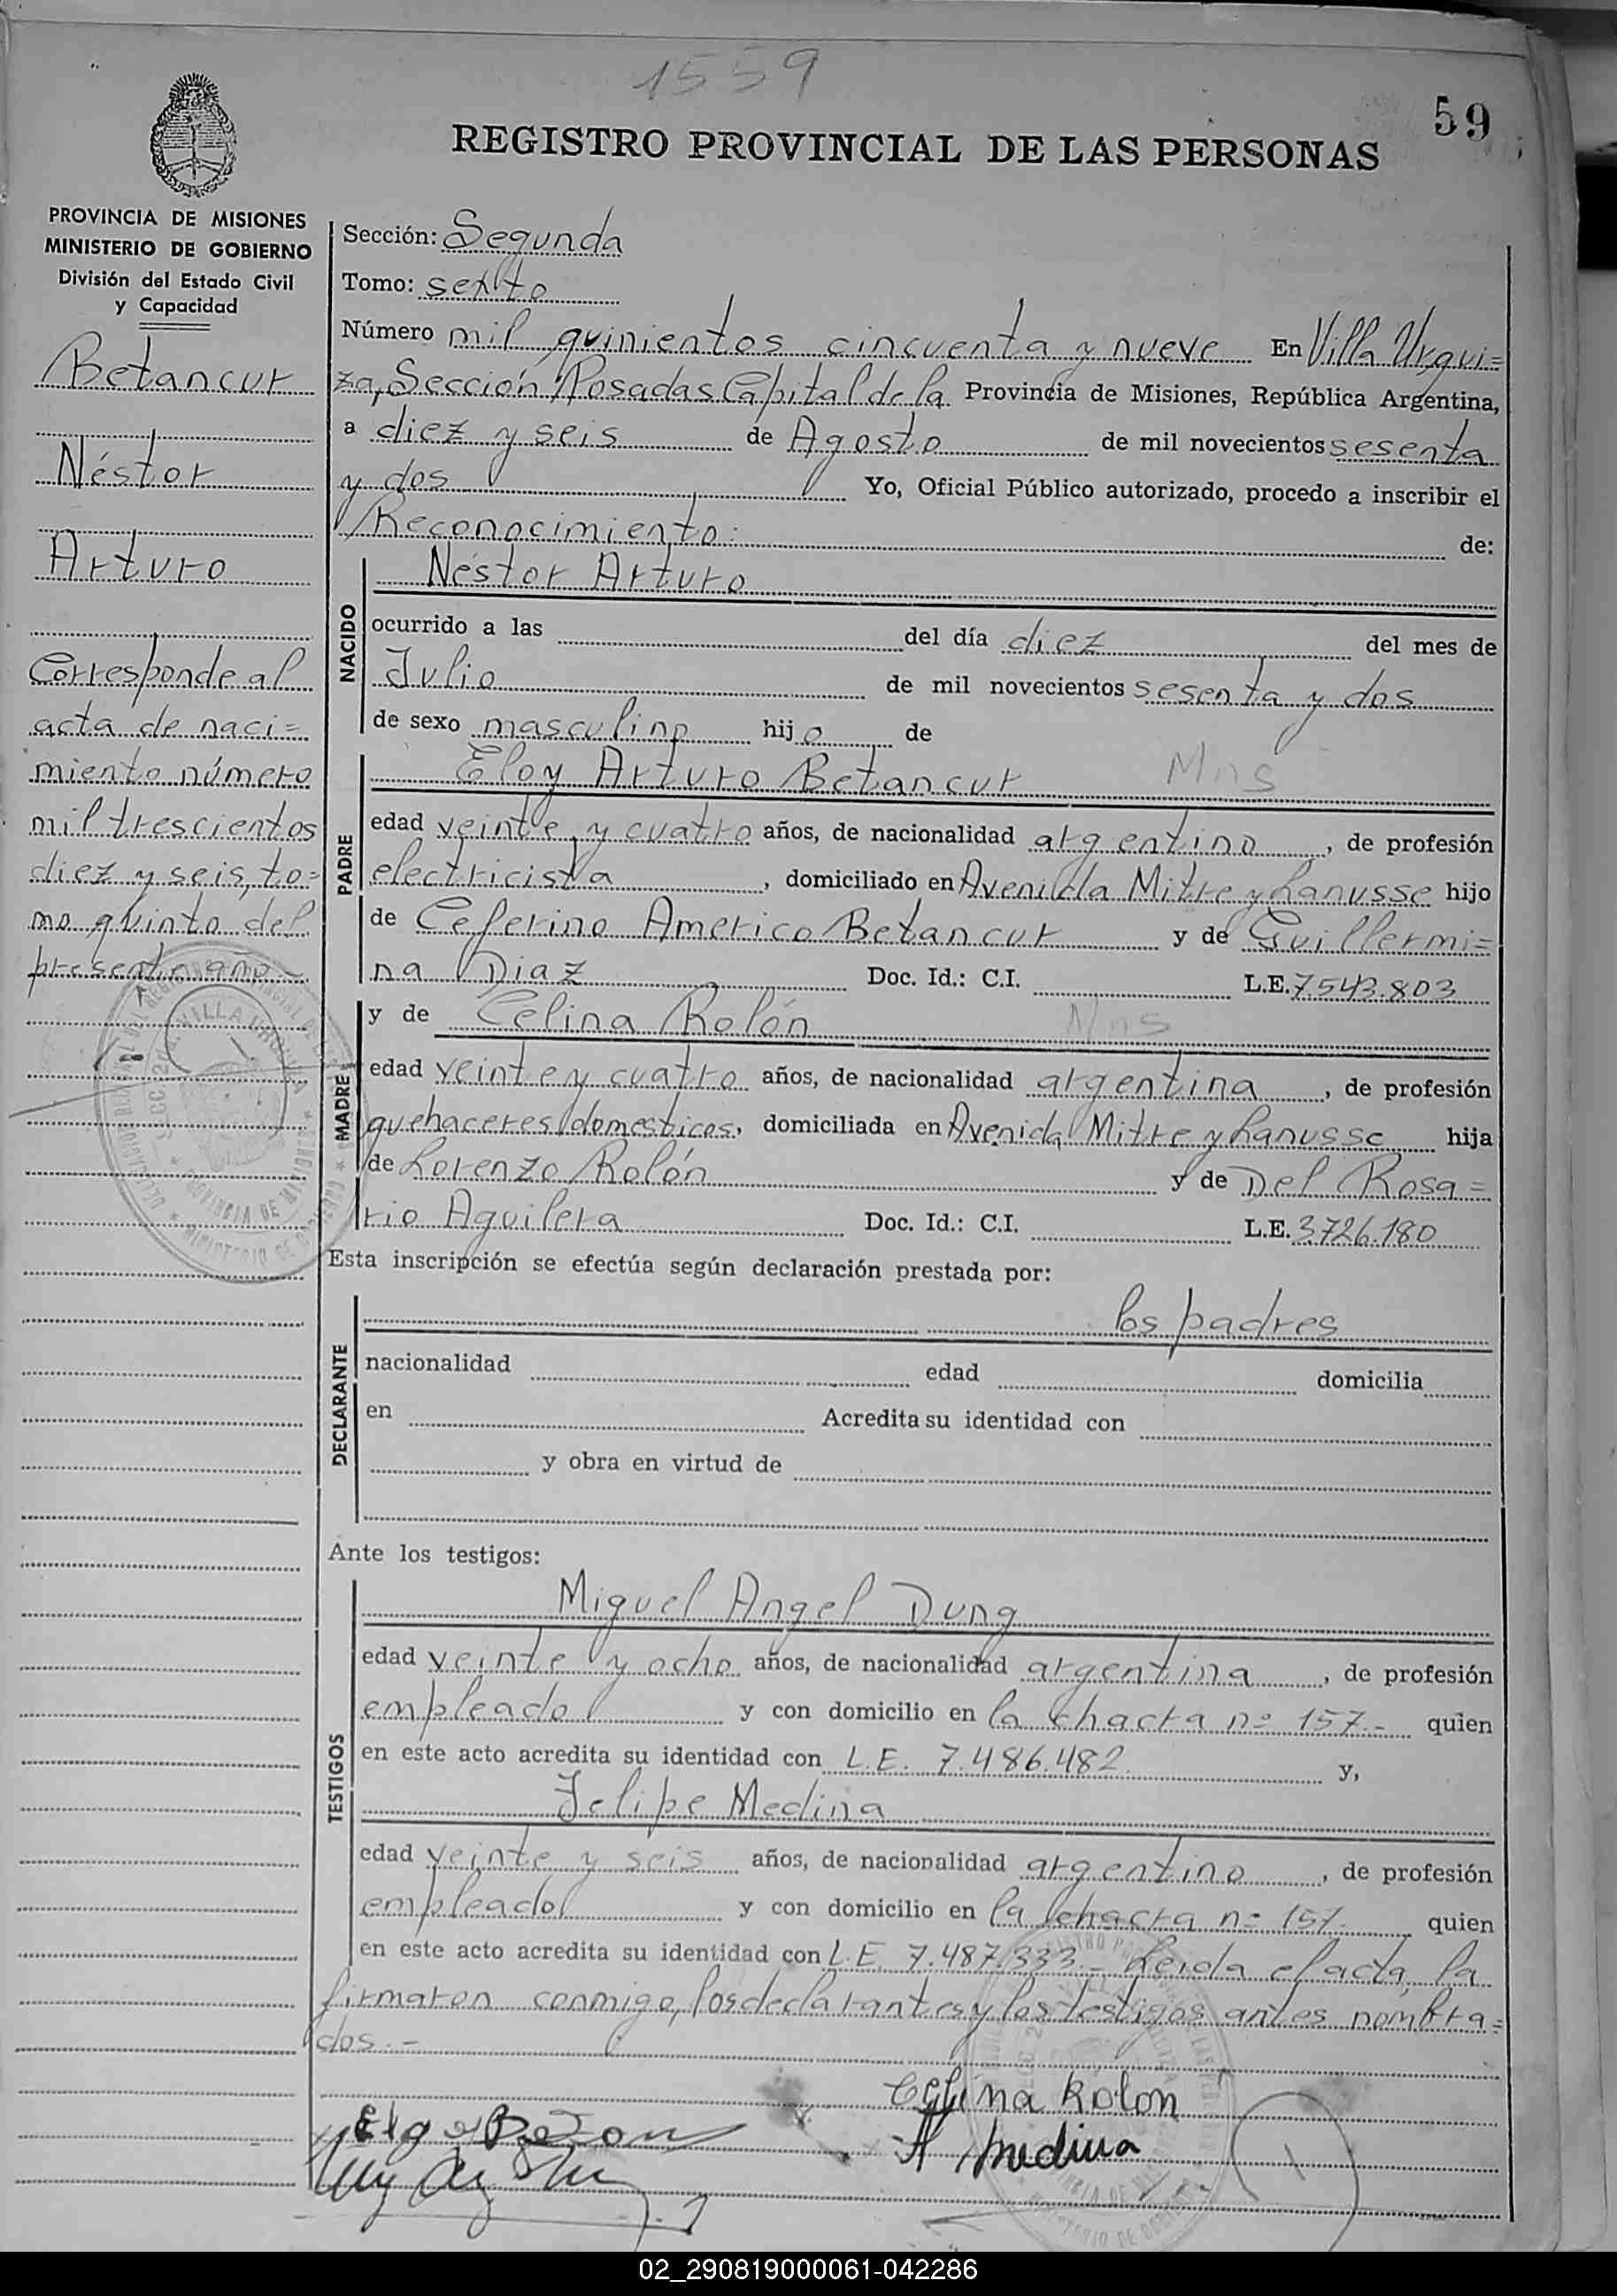 1559
59
REGISTRO PROVINCIAL DE LAS PERSONAS
PROVINCIA DE MISIONES
MINISTERIO DE GOBIERNO
División del Estado Civil
y Capacidad
Betancur
Néstor
Arturo
Corresponde al
acta de naci=
miento número
mil trescientos
diez y seis, to=
mo quinto del
presente año.-
Sección: Segunda
Tomo: sexto
Número mil quinientos cincuenta y nueve En Villa Urqui=
za, Sección Posadas Capital de la Provincia de Misiones, República Argentina,
a diez y seis de Agosto de mil novecientos sesenta
y dos Yo, Oficial Público autorizado, procedo a inscribir el
Reconocimiento: de:
NACIDO
Néstor Arturo
ocurrido a las del día diez del mes de
Julio de mil novecientos sesenta y dos
de sexo masculino hijo de
PADRE
Eloy Arturo Betancur Mns
edad veinte y cuatro años, de nacionalidad argentino, de profesión
electricista, domiciliado en Avenida Mitre y Lanusse hijo
de Ceferino Americo Betancur y de Guillermi=
na Diaz Doc. Id.: C.I. L.E. 7.543.803
MADRE
y de Celina Rolón Mns
edad veinte y cuatro años, de nacionalidad argentina, de profesión
quehaceres domesticos, domiciliada en Avenida Mitre y Lanusse hija
de Lorenzo Rolón y de Del Rosa=
rio Aguilera Doc. Id.: C.I. L.E. 3.726.180
Esta inscripción se efectúa según declaración prestada por:
DECLARANTE
los padres
nacionalidad edad domicilia
en Acredita su identidad con
y obra en virtud de
Ante los testigos:
TESTIGOS
Miguel Angel Dung
edad veinte y ocho años, de nacionalidad argentina, de profesión
empleado y con domicilio en la chacra nº 157.- quien
en este acto acredita su identidad con L.E. 7.486.482 y,
Felipe Medina
edad veinte y seis años, de nacionalidad argentino, de profesión
empleado y con domicilio en la chacra nº 157. quien
en este acto acredita su identidad con L.E. 7.487.333.- Leida el acta, la
firmaron conmigo, los declarantes y los testigos antes nombra=
dos.-
Celina Rolon
Medina
02_290819000061-042286